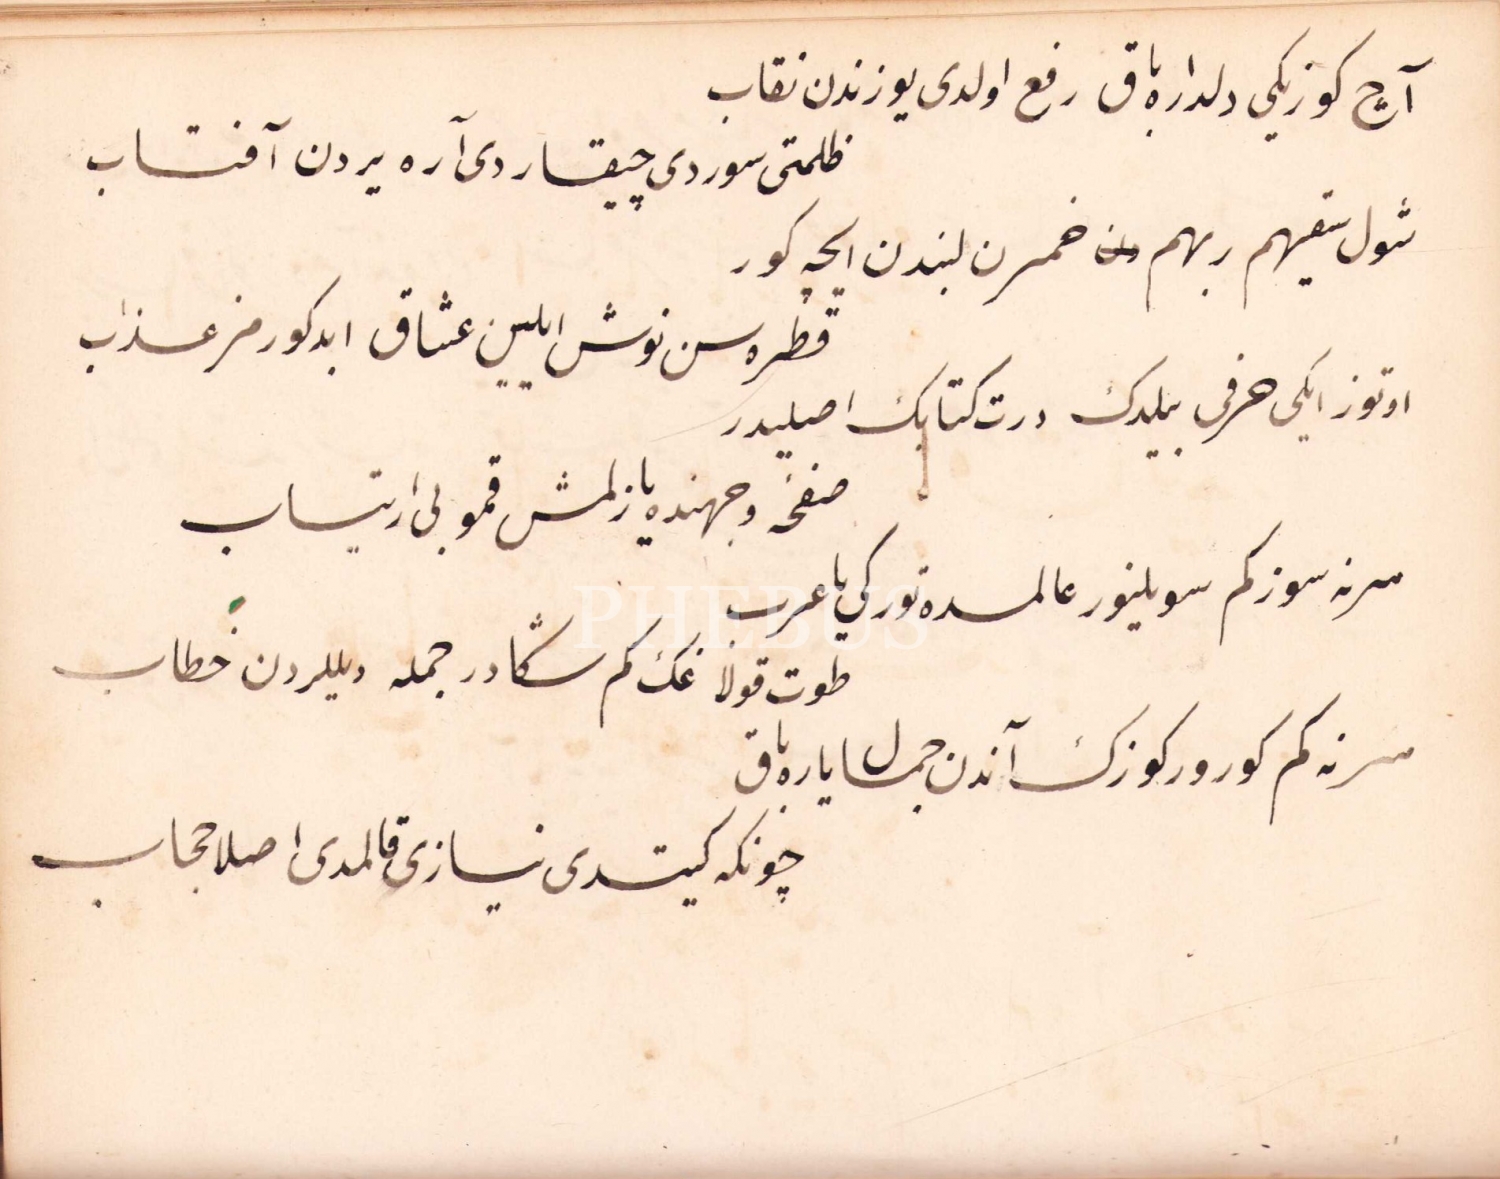 آچ كوزيكی دلداره باق رفع اولدی يوزندن نقاب
ظلمتی سوردی چيقاردی آره يردن آفتاب
شول سقيهم ربهم خمرن لبندن ايچه كور
قطره سن نوش ايلين عشاق ابد كورمز عذاب
اوتوز ايكی حرفی بيلدك درت كتابك اصليدر
صفحه وجهنده يازلمش قمو بی ارتياب
هر نه سوز كم سويلنور عالمده توركی يا عرب
طوت قولاغك كم سڭا در جمله ديللردن خطاب
هر نه كم كورور كوزك آندن جمال ياره باق
چونكه كيتدی نيازی قالمدی اصلا حجاب
PHEBUS